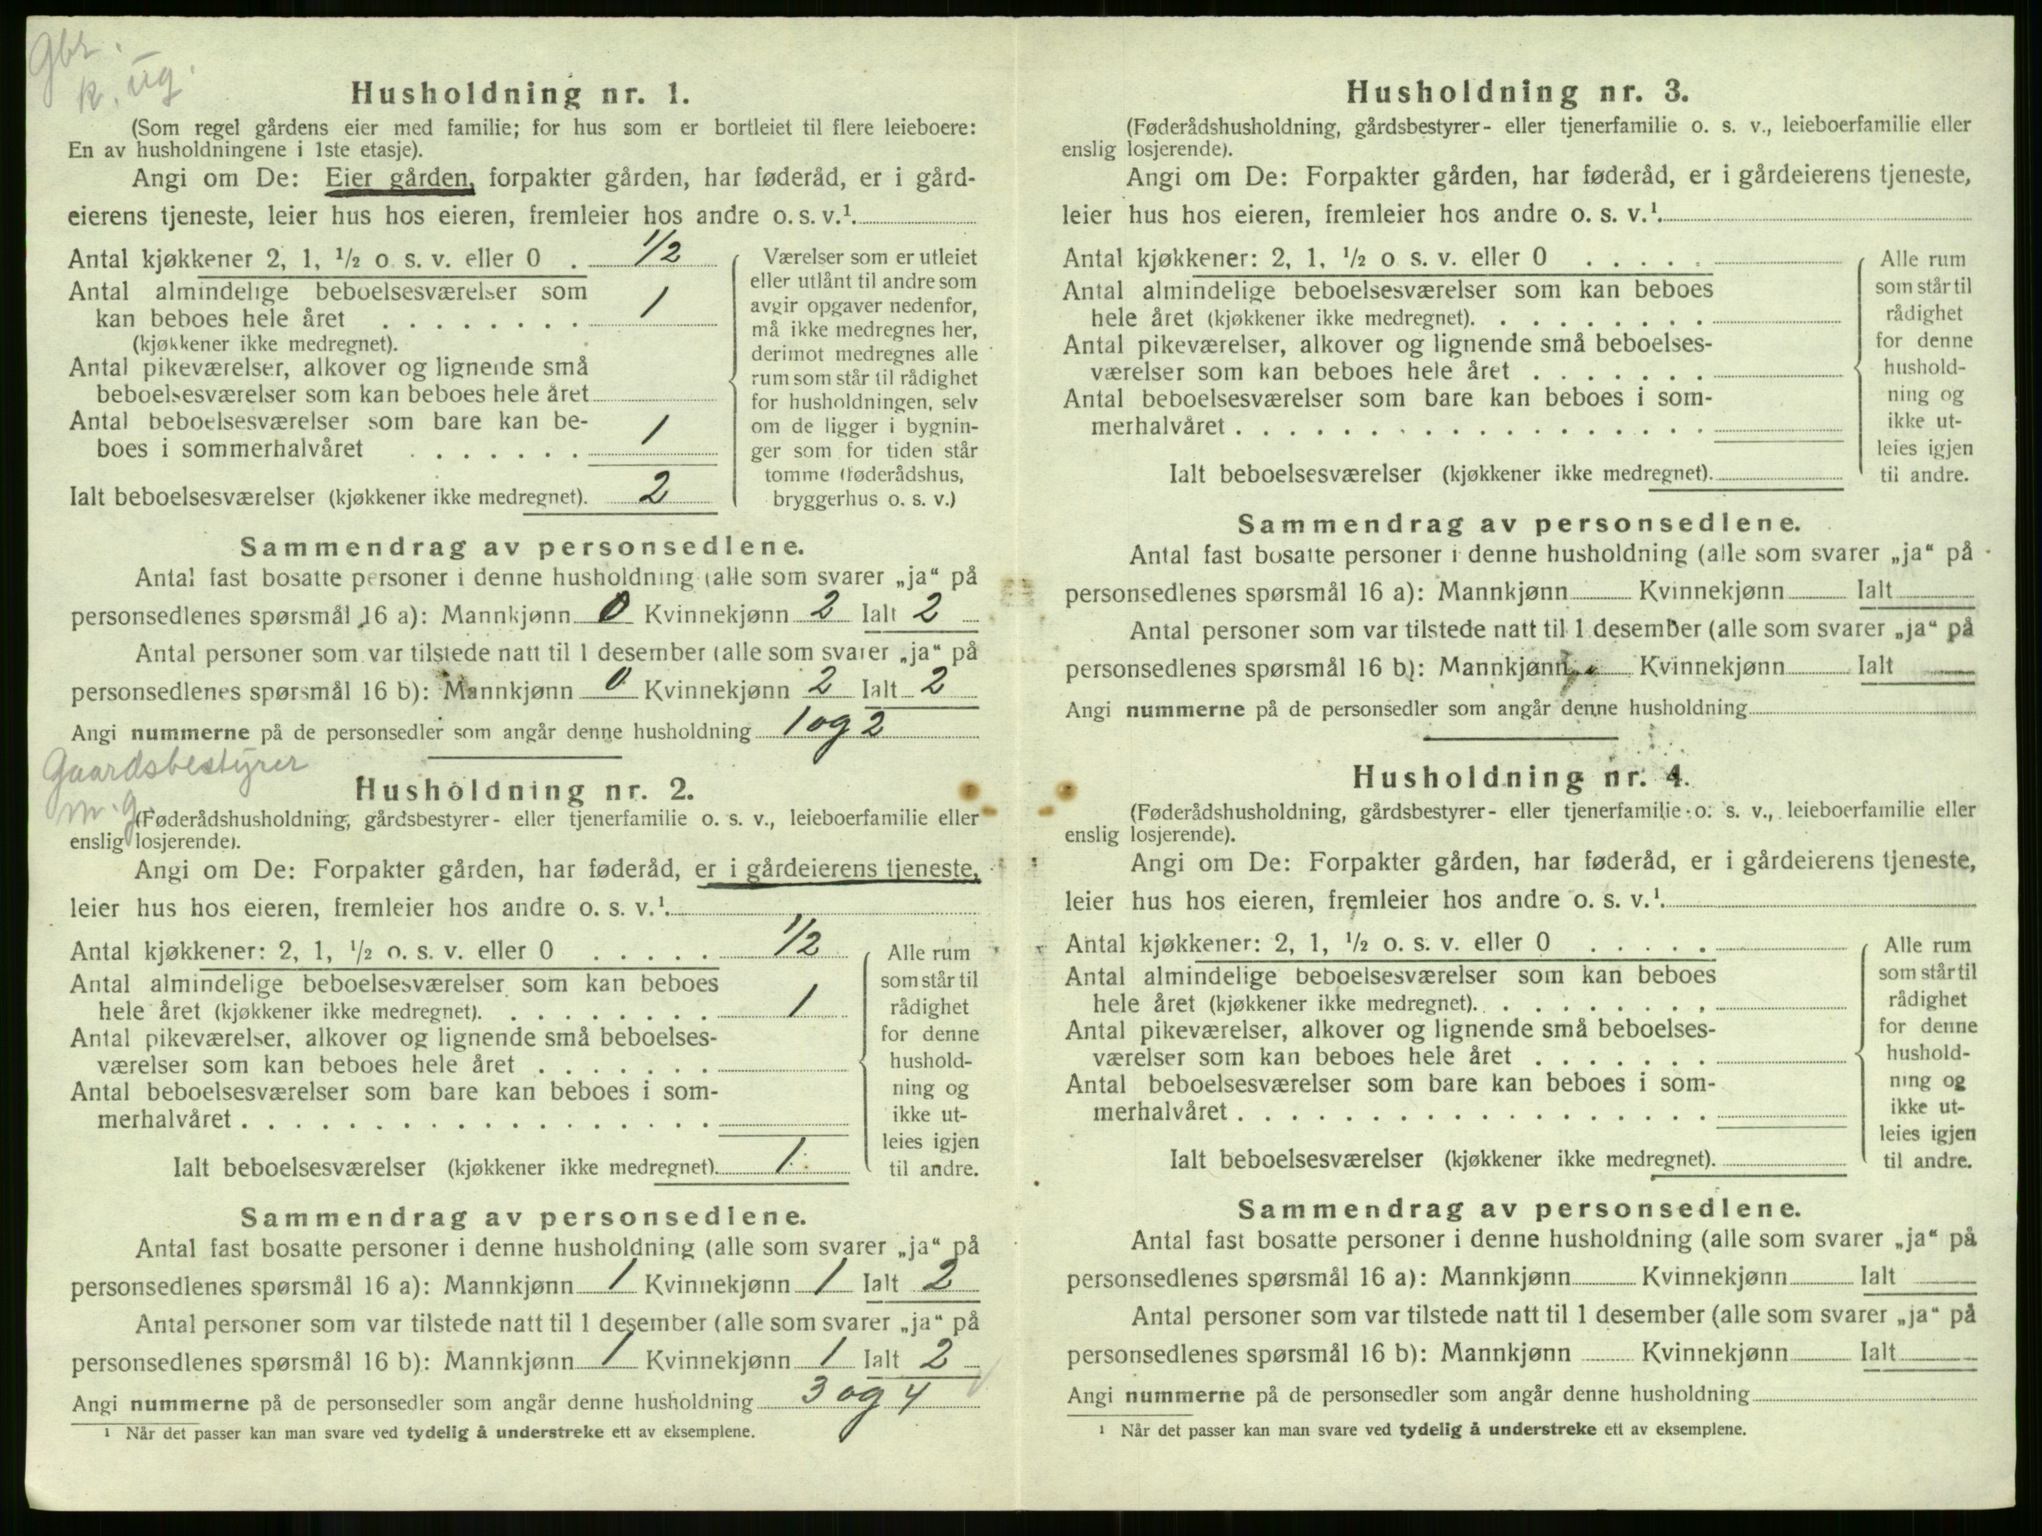 Gbr.
k. ug.
Husholdning nr. 1.
(Som regel gårdens eier med familie; for hus som er bortleiet til flere leieboere:
En av husholdningene i 1ste etasje).
Angi om De: Eier gården, forpakter gården, har føderåd, er i gård-
eierens tjeneste, leier hus hos eieren, fremleier hos andre o. s. v.¹
Antal kjøkkener 2, 1, ½ o. s. v. eller 0 . 1/2
Antal almindelige beboelsesværelser som
kan beboes hele året . . . . . . . . 1
(kjøkkener ikke medregnet).
Antal pikeværelser, alkover og lignende små
beboelsesværelser som kan beboes hele året
Antal beboelsesværelser som bare kan be-
boes i sommerhalvåret . . . . . . 1
Ialt beboelsesværelser (kjøkkener ikke medregnet). 2
Værelser som er utleiet
eller utlånt til andre som
avgir opgaver nedenfor,
må ikke medregnes her,
derimot medregnes alle
rum som står til rådighet
for husholdningen, selv
om de ligger i bygnin-
ger som for tiden står
tomme (føderådshus,
bryggerhus o. s. v.)
Sammendrag av personsedlene.
Antal fast bosatte personer i denne husholdning (alle som svarer „ja“ på
personsedlenes spørsmål 16 a): Mannkjønn 0 Kvinnekjønn 2 Ialt 2
Antal personer som var tilstede natt til 1 desember (alle som svarer „ja“ på
personsedlenes spørsmål 16 b): Mannkjønn 0 Kvinnekjønn 2 Ialt 2
Angi nummerne på de personsedler som angår denne husholdning 1 og 2
Gaardsbestyrer
m. g.
Husholdning nr. 2.
(Føderådshusholdning, gårdsbestyrer- eller tjenerfamilie o. s. v., leieboerfamilie eller
enslig losjerende).
Angi om De: Forpakter gården, har føderåd, er i gårdeierens tjeneste,
leier hus hos eieren, fremleier hos andre o. s. v.¹.
Antal kjøkkener: 2, 1, ½ o. s. v. eller 0 . . . . . 1/2
Antal almindelige beboelsesværelser som kan beboes
hele året (kjøkkener ikke medregnet). . . . . . . . . 1
Antal pikeværelser, alkover og lignende små beboelses-
værelser som kan beboes hele året . . . . . . .
Antal beboelsesværelser som bare kan beboes i som-
merhalvåret . . . . . . . . . . . . . . . . . .
Ialt beboelsesværelser (kjøkkener ikke medregnet). 1
Alle rum
som står til
rådighet
for denne
hushold-
ning og
ikke ut-
leies igjen
til andre.
Sammendrag av personsedlene.
Antal fast bosatte personer i denne husholdning (alle som svarer „ja“ på
personsedlenes spørsmål 16 a): Mannkjønn 1 Kvinnekjønn 1 Ialt 2
Antal personer som var tilstede natt til 1 desember (alle som svarer „ja“ på
personsedlenes spørsmål 16 b): Mannkjønn 1 Kvinnekjønn 1 Ialt 2
Angi nummerne på de personsedler som angår denne husholdning 3 og 4
¹ Når det passer kan man svare ved tydelig å understreke ett av eksemplene.
Husholdning nr. 3.
(Føderådshusholdning, gårdsbestyrer- eller tjenerfamilie o. s. v., leieboerfamilie eller
enslig losjerende).
Angi om De: Forpakter gården, har føderåd, er i gårdeierens tjeneste,
leier hus hos eieren, fremleier hos andre o. s. v.¹.
Antal kjøkkener: 2, 1, ½ o s. v. eller 0 . . . . .
Antal almindelige beboelsesværelser som kan beboes
hele året (kjøkkener ikke medregnet). . . . . . . . .
Antal pikeværelser, alkover og lignende små beboelses-
værelser som kan beboes hele året . . . . . . .
Antal beboelsesværelser som bare kan beboes i som-
merhalvåret . . . . . . . . . . . . . . . . . .
Ialt beboelsesværelser (kjøkkener ikke medregnet).
Alle rum
som står til
rådighet
for denne
hushold-
ning og
ikke ut-
leies igjen
til andre.
Sammendrag av personsedlene.
Antal fast bosatte personer i denne husholdning (alle som svarer „ja“ på
personsedlenes spørsmål 16 a): Mannkjønn Kvinnekjønn Ialt
Antal personer som var tilstede natt til 1 desember (alle som svarer „ja“ på
personsedlenes spørsmål 16 b): Mannkjønn Kvinnekjønn Ialt
Angi nummerne på de personsedler som angår denne husholdning
Husholdning nr. 4.
(Føderådshusholdning, gårdsbestyrer- eller tjenerfamilie o. s. v., leieboerfamilie eller
enslig losjerende).
Angi om De: Forpakter gården, har føderåd, er i gårdeierens tjeneste,
leier hus hos eieren, fremleier hos andre o. s. v.¹.
Antal kjøkkener: 2, 1, ½ o. s. v. eller 0 . . . . .
Antal almindelige beboelsesværelser som kan beboes
hele året (kjøkkener ikke medregnet). . . . . . . . .
Antal pikeværelser, alkover og lignende små beboelses-
værelser som kan beboes hele året . . . . . . .
Antal beboelsesværelser som bare kan beboes i som-
merhalvåret . . . . . . . . . . . . . . . . . .
Ialt beboelsesværelser (kjøkkener ikke medregnet).
Alle rum
som står til
rådighet
for denne
hushold-
ning og
ikke ut-
leies igjen
til andre.
Sammendrag av personsedlene.
Antal fast bosatte personer i denne husholdning (alle som svarer „ja“ på
personsedlenes spørsmål 16 a): Mannkjønn Kvinnekjønn Ialt
Antal personer som var tilstede natt til 1 desember (alle som svarer „ja“ på
personsedlenes spørsmål 16 b): Mannkjønn Kvinnekjønn Ialt
Angi nummerne på de personsedler som angår denne husholdning
¹ Når det passer kan man svare ved tydelig å understreke ett av eksemplene.